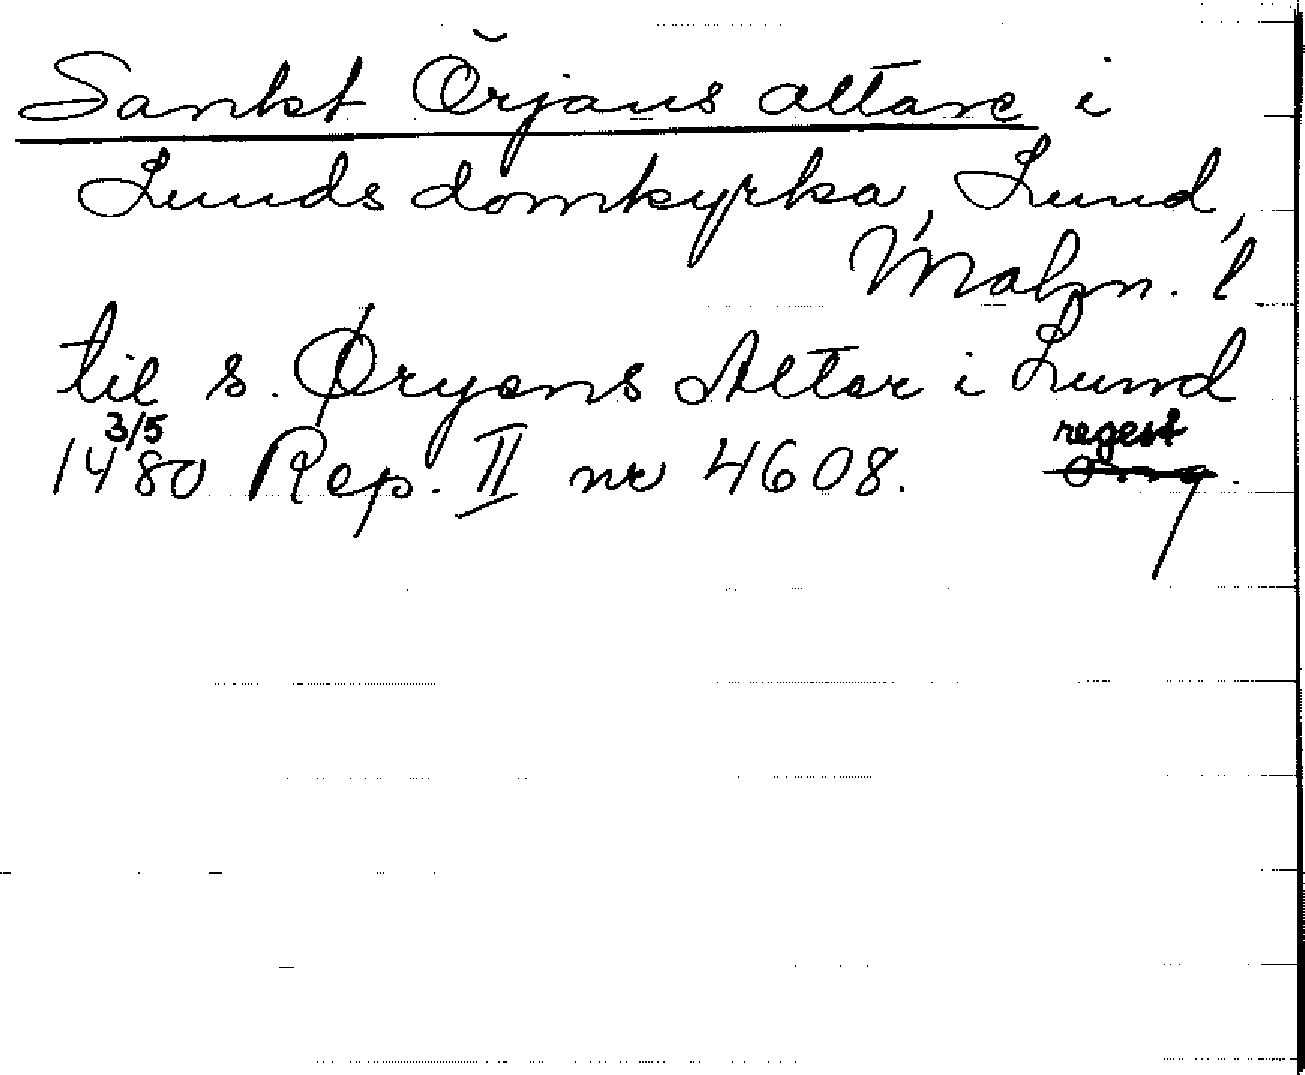 Sankt Örjans altare i
Lunds domkyrka, Lund,
Malm. l
til s. Øryens Altar i Lund
3/5 regest
1480 Rep. II nr 4608.